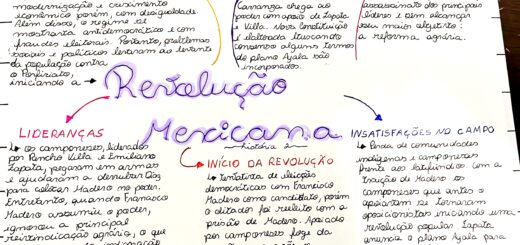 modernização e crescimento
econômico porém, com desigualdade.
Além disso, o regime se
mostrava antidemocrático e com
fraudes eleitorais. Portanto, problemas
sociais e políticos levaram ao levante
da população contra
o Porfiriato,
iniciando a
Carranza chega ao
poder com apoio de Zapata
e Villa. Nova Constituição
é elaborada buscando
consenso, alguns termos
do plano Ayala são
incorporados.
assassinato dos principais
líderes e sem alcançar
seu mais objetivo:
a reforma agrária.
Revolução
Mexicana
história 2
LIDERANÇAS
os camponeses, liderados
por Pancho Villa e Emiliano
Zapata, pegaram em armas
e ajudaram a derrubar Díaz
para colocar Madero no poder.
Entretanto, quando Francisco
Madero assumiu o poder,
ignorou a principal
reivindicação agrária, o que
INÍCIO DA REVOLUÇÃO
tentativa de eleição
democráticas com Francisco
Madero como candidato, porém
o ditador foi reeleito com a
prisão de Madero. Apoiado
por camponeses foge da
INSATISFAÇÕES NO CAMPO
Perda de comunidades
indígenas e camponeses
frente aos latifúndios com a
traição de Madero os
camponeses que antes o
apoiaram se tornaram
oposicionistas iniciando uma
revolução popular. Zapata
anuncia o plano Ayala para